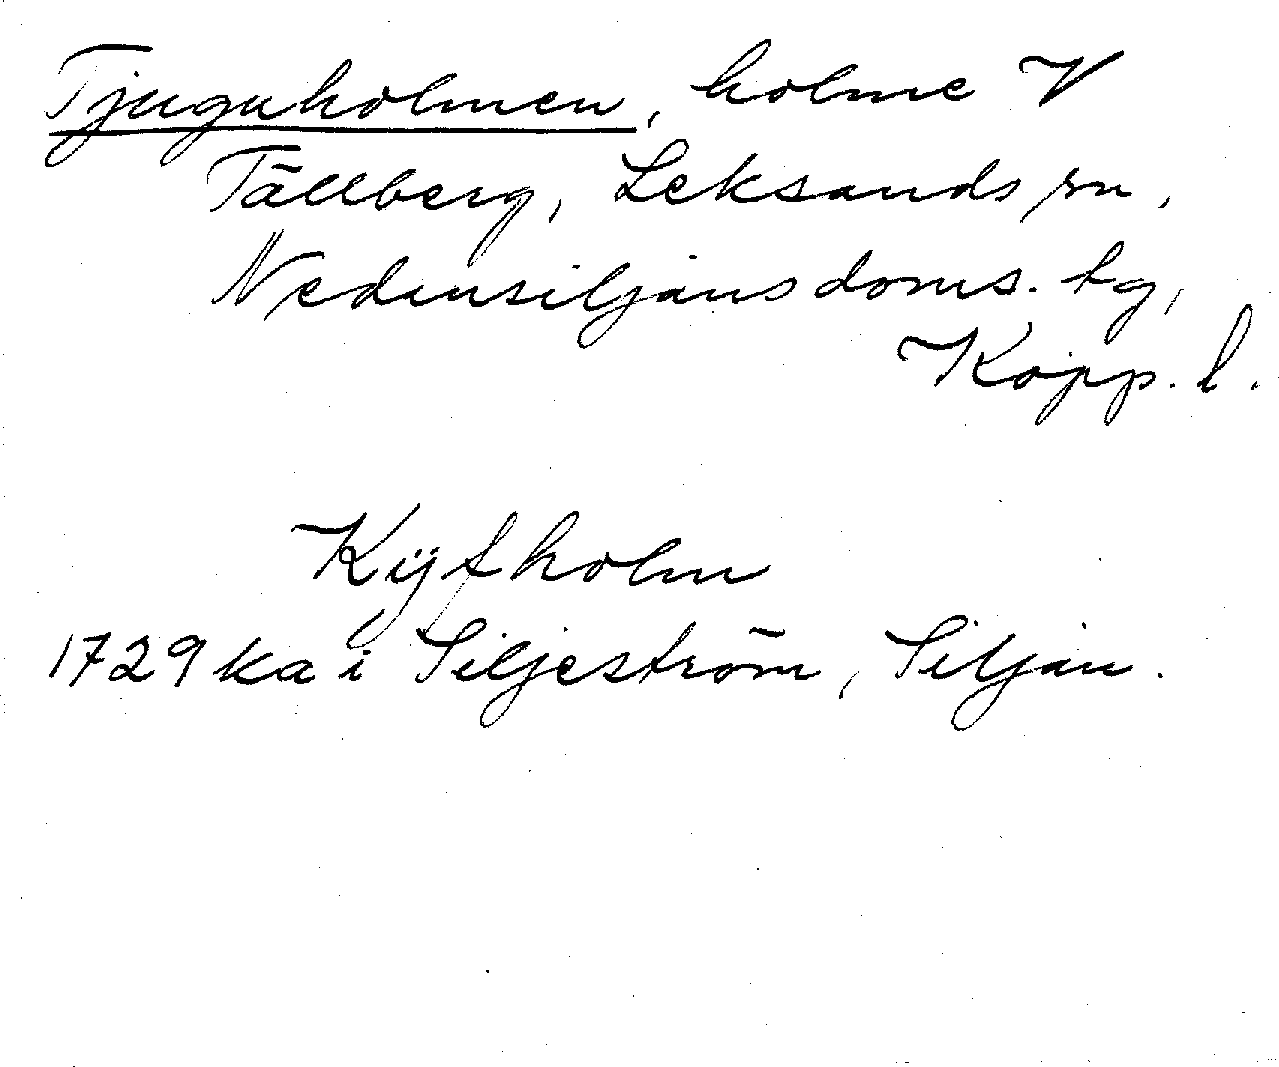 Tjuguholmen, holme V
Tällberg, Leksands sn,
Nedansiljans doms. tg,
Kopp. l.
Kÿfholm
1729 ka i Siljeström, Siljan.